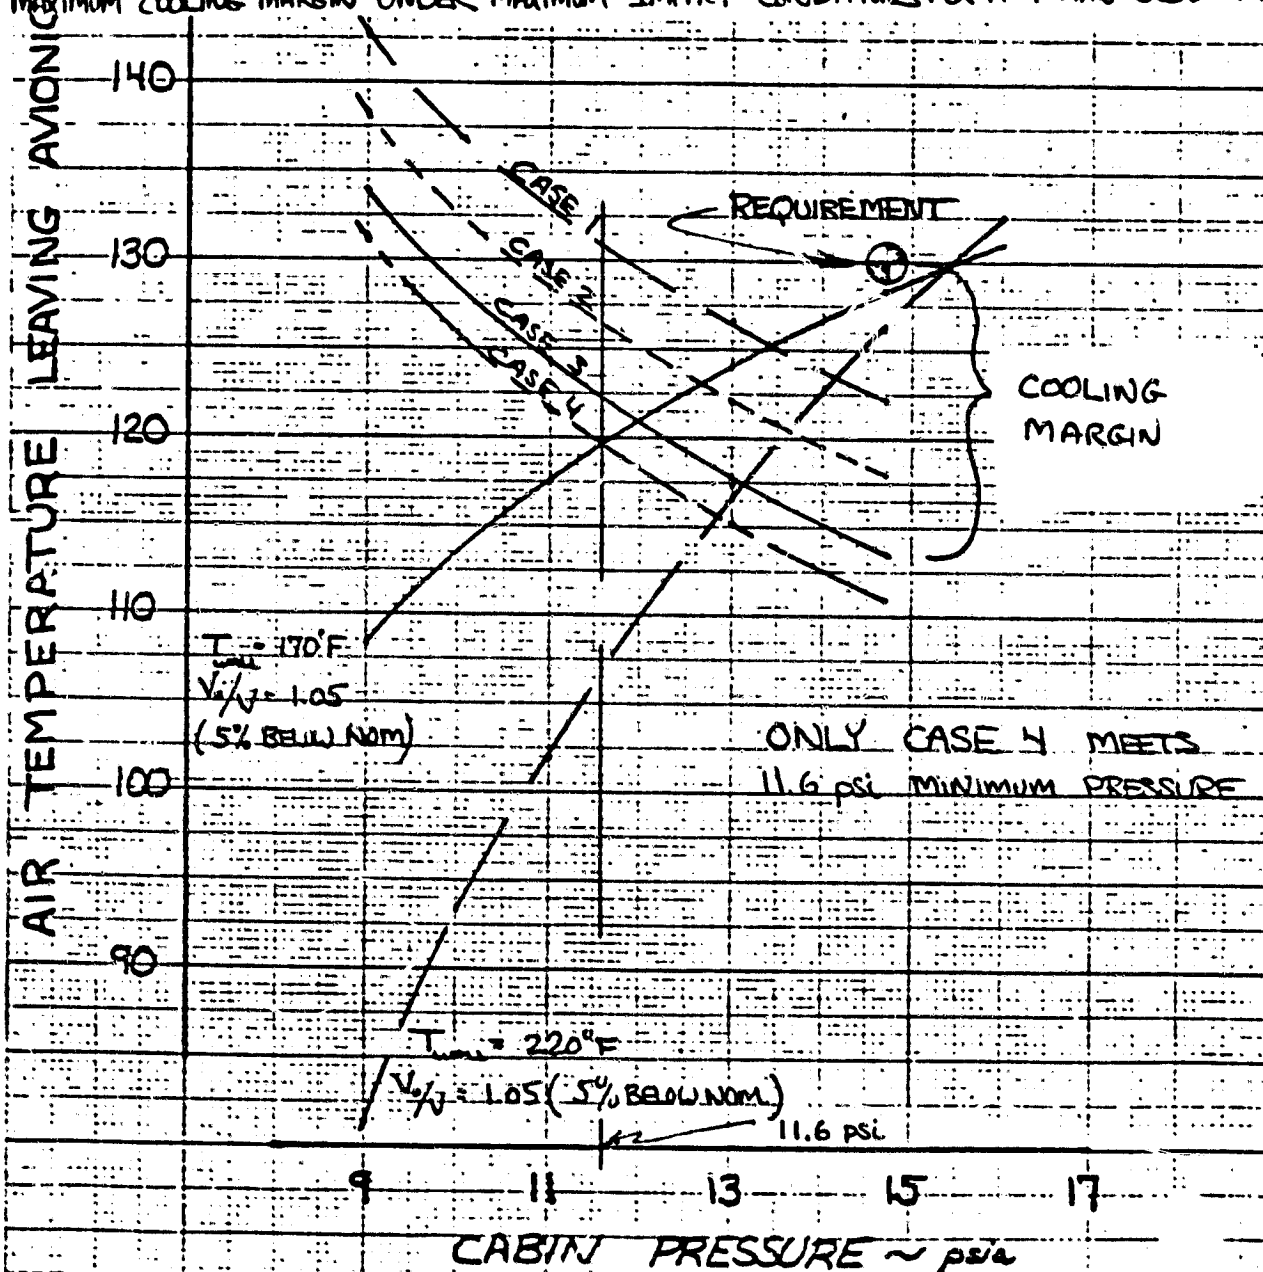 MAXIMUM COOLING MARGIN UNDER MAXIMUM
AIR TEMPERATURE LEAVING AVIONIC
140
130
120
110
100
90
CASE 1
CASE 2
CASE 3
CASE 4
REQUIREMENT
COOLING
MARGIN
T wall = 170°F
V₀/V = 1.05
(5% BELOW NOM)
ONLY CASE 4 MEETS
11.6 psi MINIMUM PRESSURE
T wall = 220°F
V₀/V = 1.05 (5% BELOW NOM)
11.6 psi
9 11 13 15 17
CABIN PRESSURE ~ psia